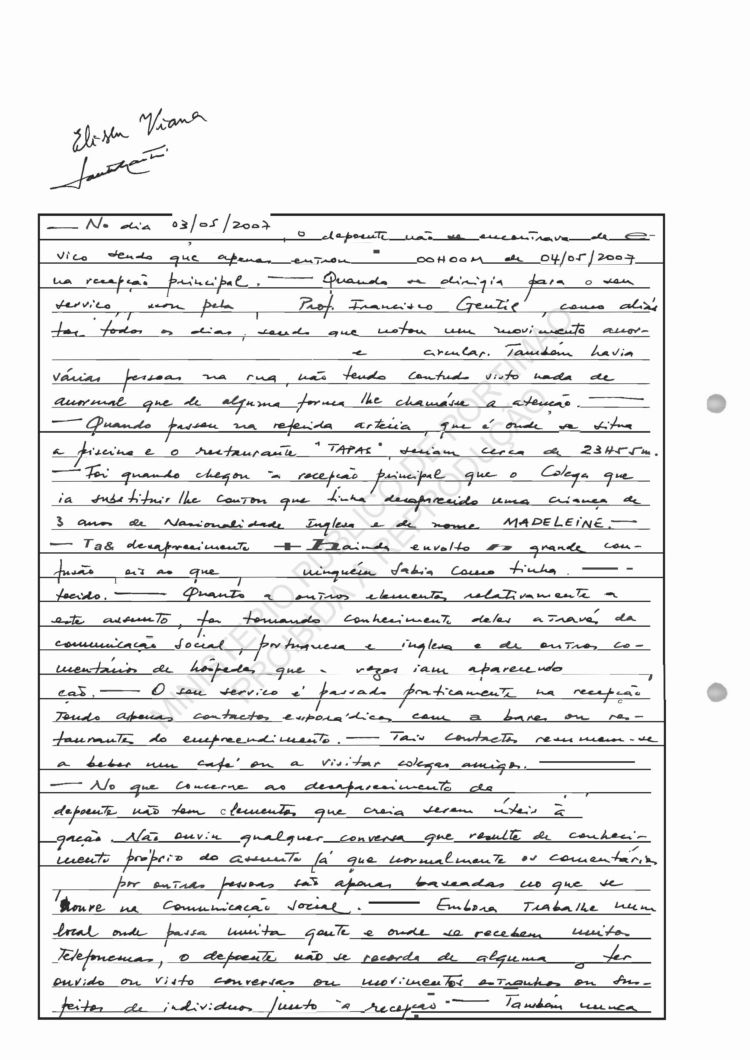 Elisa Viana
— No dia 03/05/2007, o depoente não se encontrava de
viço sendo que apenas entrou 00H00M de 04/05/2007
na recepção principal. — Quando se dirigia para o seu
serviço, pela Prof. Francisco Gentil, como aliás
faz todos os dias, sendo que notou um movimento anor-
e circular. Também havia
várias pessoas na rua, não tendo contudo visto nada de
anormal que de alguma forma lhe chamasse a atenção. —
— Quando passou na referida artéria, que é onde se situa
a piscina e o restaurante "TAPAS", seriam cerca de 23H55m.
— Foi quando chegou à recepção principal que o Colega que
ia substituir lhe contou que tinha desaparecido uma criança de
3 anos de Nacionalidade Inglesa e de nome MADELEINE. —
— Tal desaparecimento ainda envolto grande con-
fusão, ninguém sabia como tinha. —
tecido. — Quanto a outros elementos relativamente a
este assunto, foi tomando conhecimento deles através da
comunicação social, portuguesa e inglesa e de outros co-
mentários de hóspedes que vezes iam aparecendo
. — O seu serviço é passado praticamente na recepção
Tendo apenas contactos esporádicos com a bares ou res-
taurantes do empreendimento. — Tais contactos resumem-se
a beber um café ou a visitar colegas amigos. —
— No que concerne ao desaparecimento da
depoente não tem elementos que creia serem úteis à
gação. Não ouviu qualquer conversa que resulte de conheci-
mento próprio do assunto já que normalmente os comentários
por outras pessoas são apenas baseadas no que se
houve na Comunicação Social. — Embora Trabalhe num
local onde passa muita gente e onde se recebem muitos
Telefonemas, o depoente não se recorda de alguma ter
ouvido ou visto conversas ou movimentos estranhos ou sus-
peitos de individuos junto à recepção — Também nunca
MINISTÉRIO PÚBLICO DE PORTIMÃO
PROIBIDA A REPRODUÇÃO